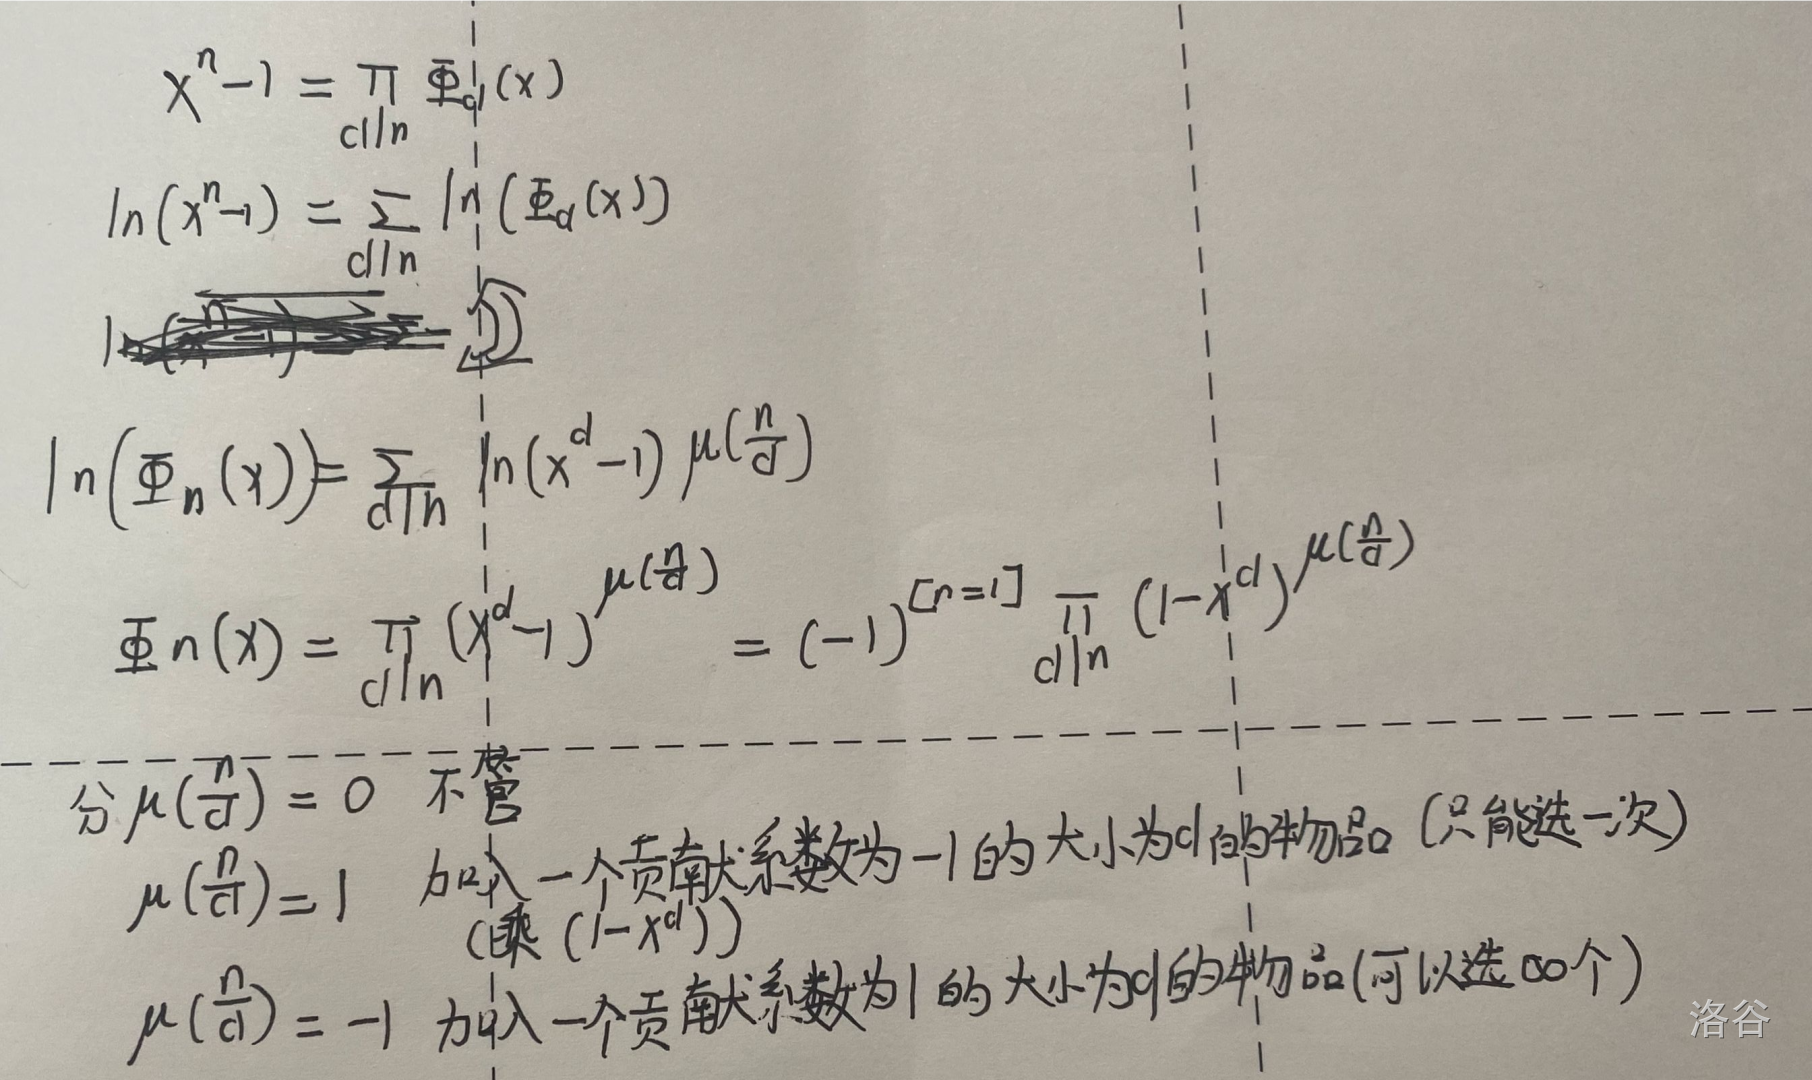 xⁿ-1 = ∏_{d|n} Φ_d(x)
ln(xⁿ-1) = Σ_{d|n} ln(Φ_d(x))
ln(Φ_n(x)) = Σ_{d|n} ln(x^d-1) μ(n/d)
Φn(x) = ∏_{d|n} (x^d-1)^{μ(n/d)} = (-1)^{[n=1]} ∏_{d|n} (1-x^d)^{μ(n/d)}
分 μ(n/d) = 0 不管
μ(n/d) = 1 加入一个贡献系数为-1的大小为d的物品(只能选一次)
(乘(1-x^d))
μ(n/d) = -1 加入一个贡献系数为1的大小为d的物品(可以选∞个)
洛谷